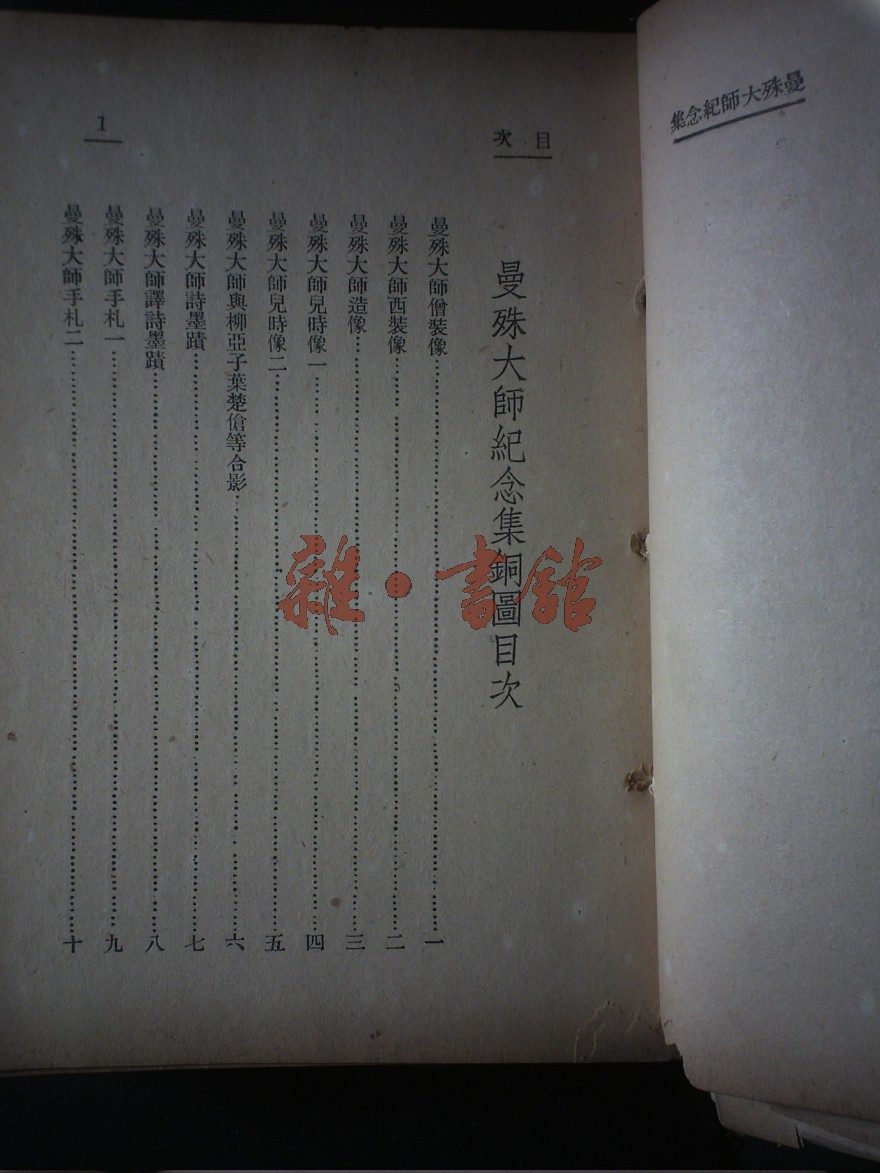 曼殊大師紀念集
目次
曼殊大師紀念集銅圖目次
曼殊大師僧裝像……一
曼殊大師西裝像……二
曼殊大師造像……三
曼殊大師兒時像一……四
曼殊大師兒時像二……五
曼殊大師與柳亞子葉楚傖等合影……六
曼殊大師詩墨蹟……七
曼殊大師譯詩墨蹟……八
曼殊大師手札一……九
曼殊大師手札二……十
1
雜·書館